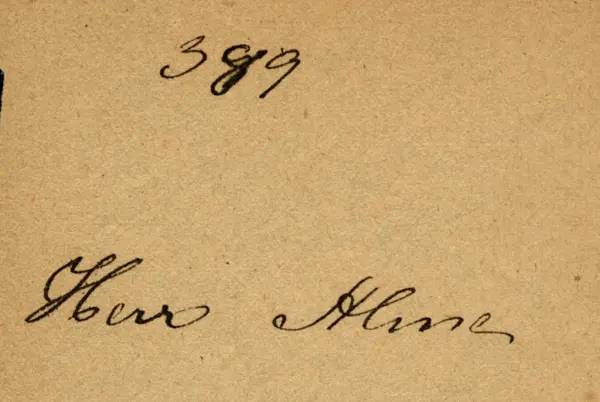 389
Herr Alma